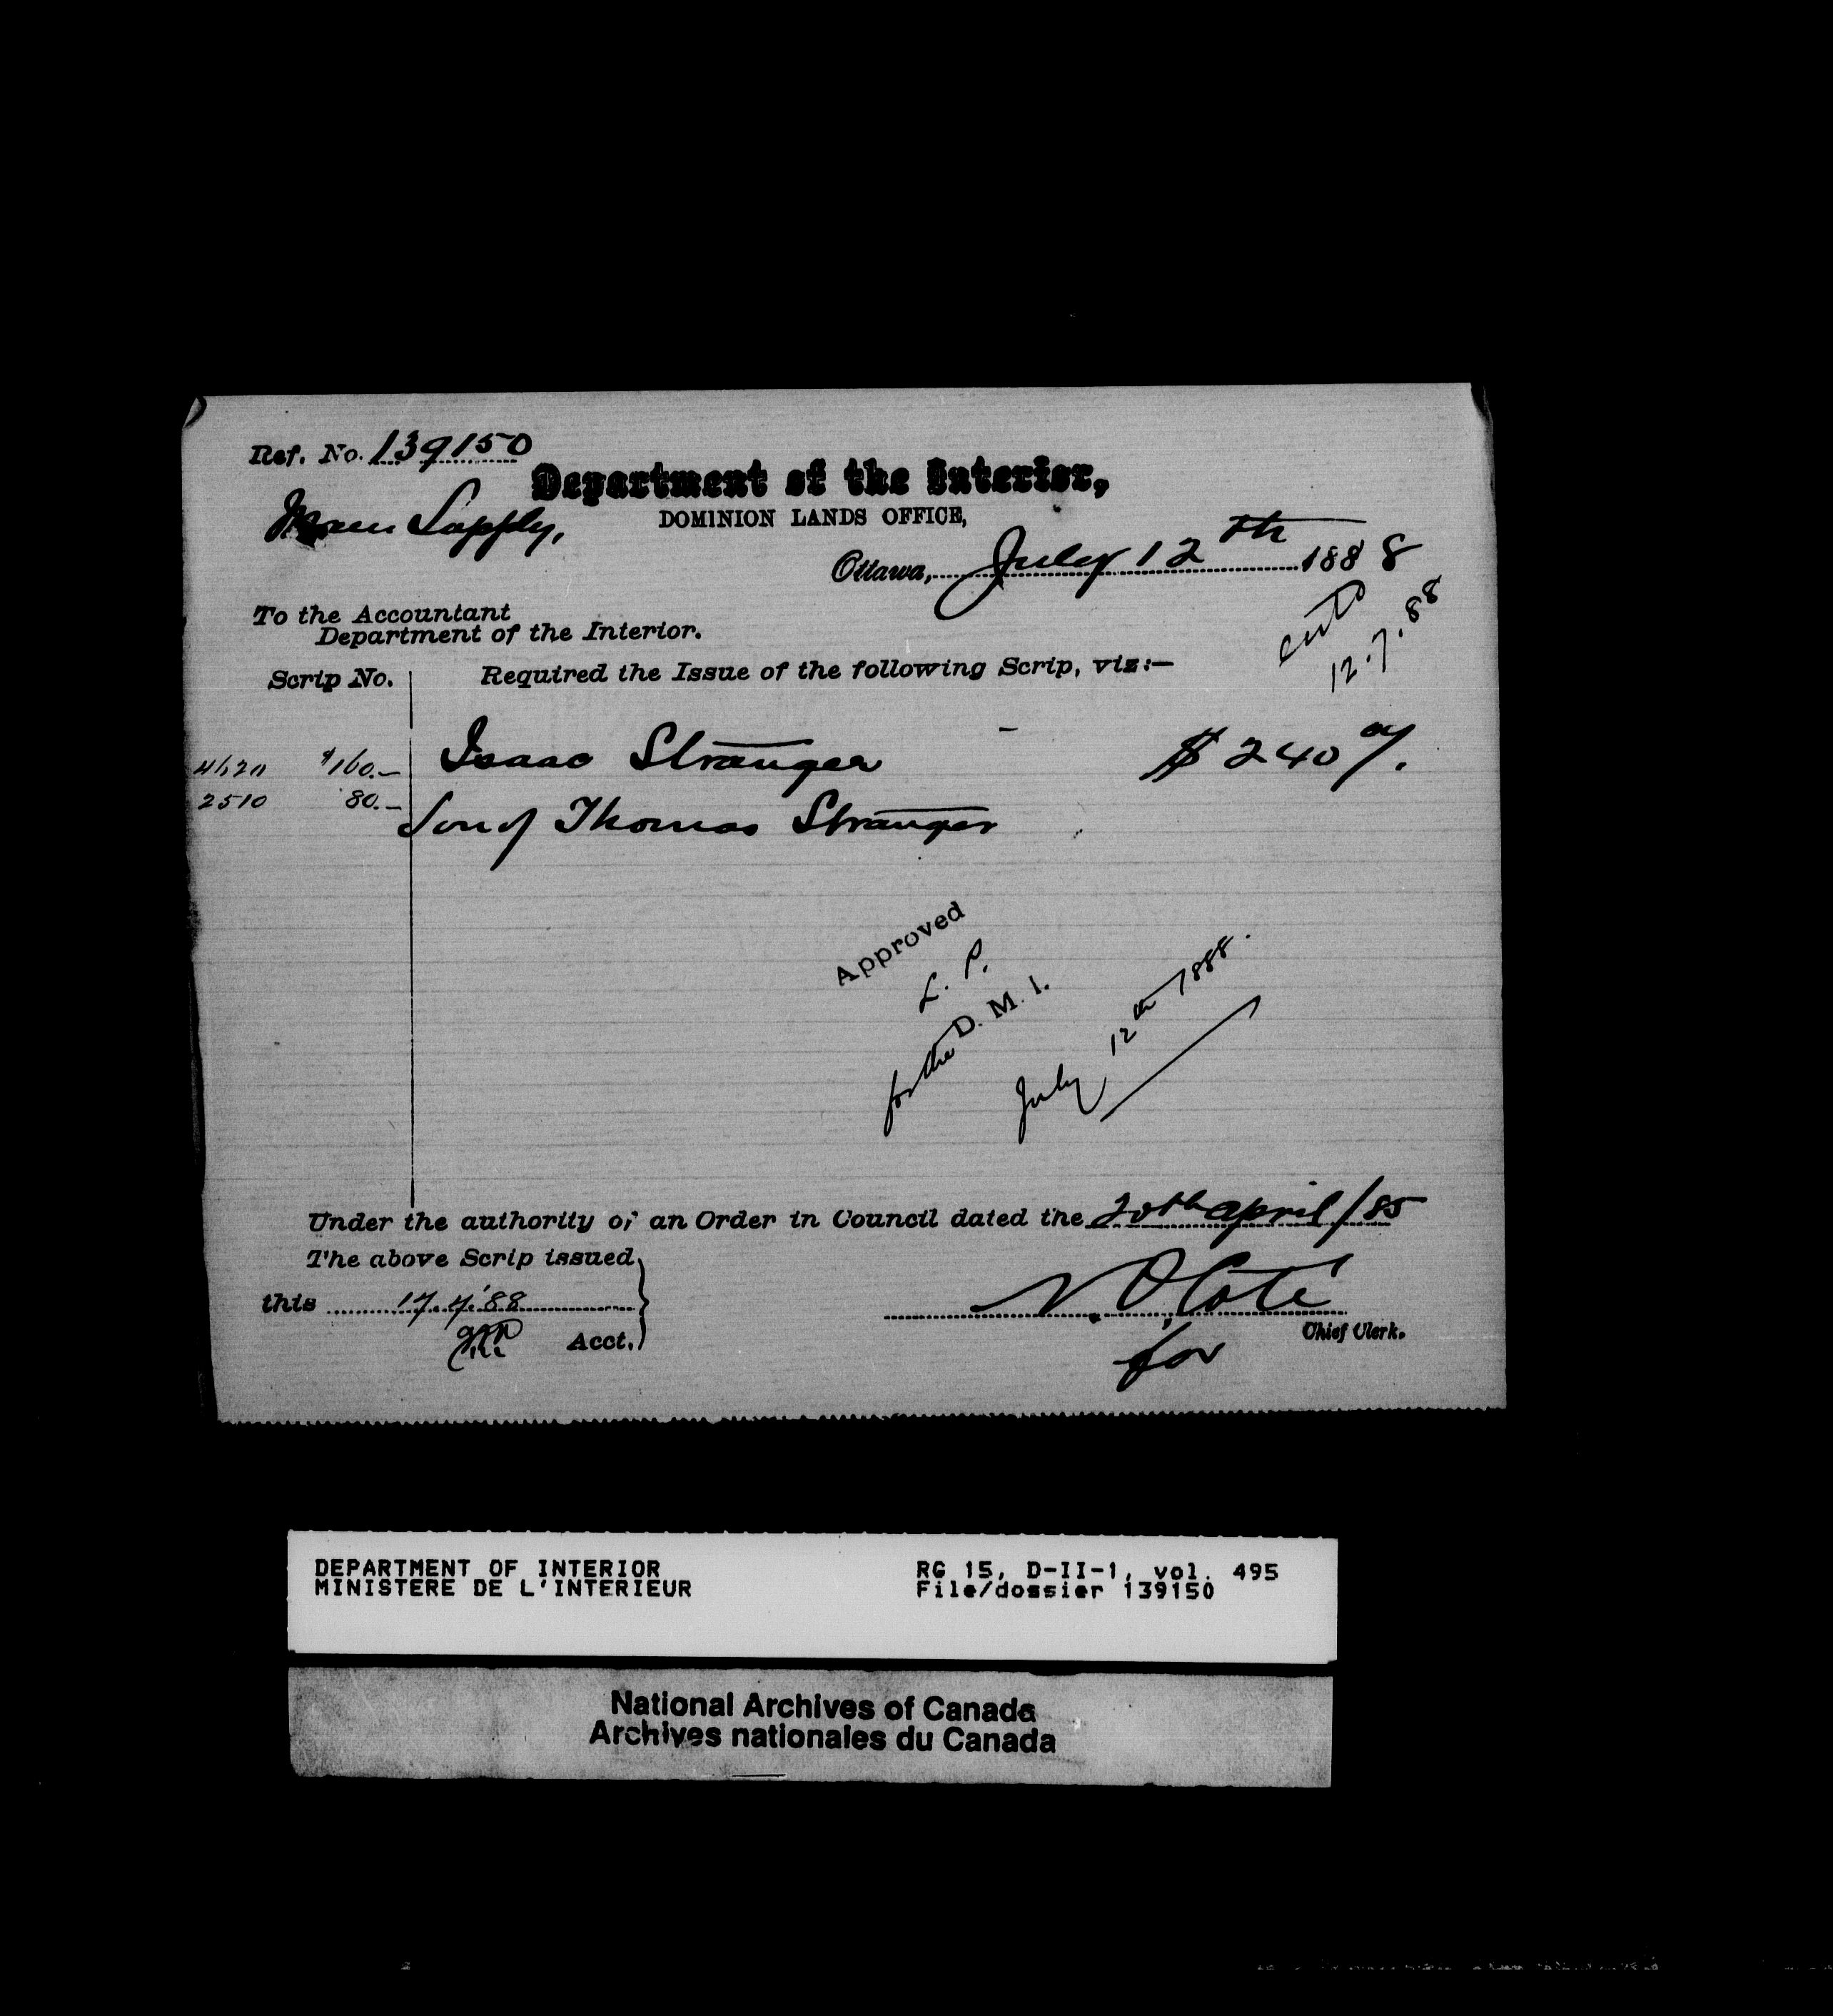 Ref. No. 139150
Department of the Interior,
Supply,
DOMINION LANDS OFFICE,
Ottawa, July 12th 1888
To the Accountant
Department of the Interior.
12.7.88
Scrip No.
Required the Issue of the following Scrip, viz:—
4620 $160.– Isaac Stranger – $240
2510 80.– Son of Thomas Stranger
Approved
L. P.
for the D. M. I.
July 12th 1888.
Under the authority of an Order in Council dated the 20th april/85
The above Scrip issued
this 17.7.'88
N. O. Coté
Acct.
Chief Clerk.
for
DEPARTMENT OF INTERIOR
MINISTERE DE L'INTERIEUR
RG 15, D-II-1, vol. 495
File/dossier 139150
National Archives of Canada
Archives nationales du Canada